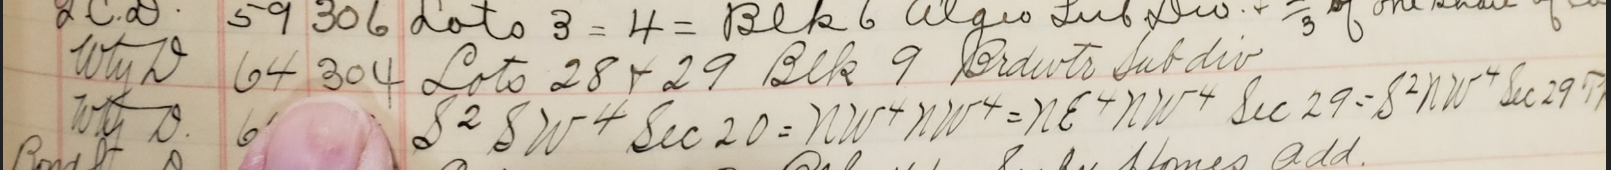 2 C.D. 59 306 Lots 3 = 4 = Blk 6 Algeo Sub Div. + 2/3 of one share of
Wty D 64 304 Lots 28 + 29 Blk 9 Brdwtr Subdiv
Wty D. 6 S2 SW4 Sec 20 = NW4 NW4 = NE4 NW4 Sec 29 = S2 NW4 Sec 29
Blk Homes Add.